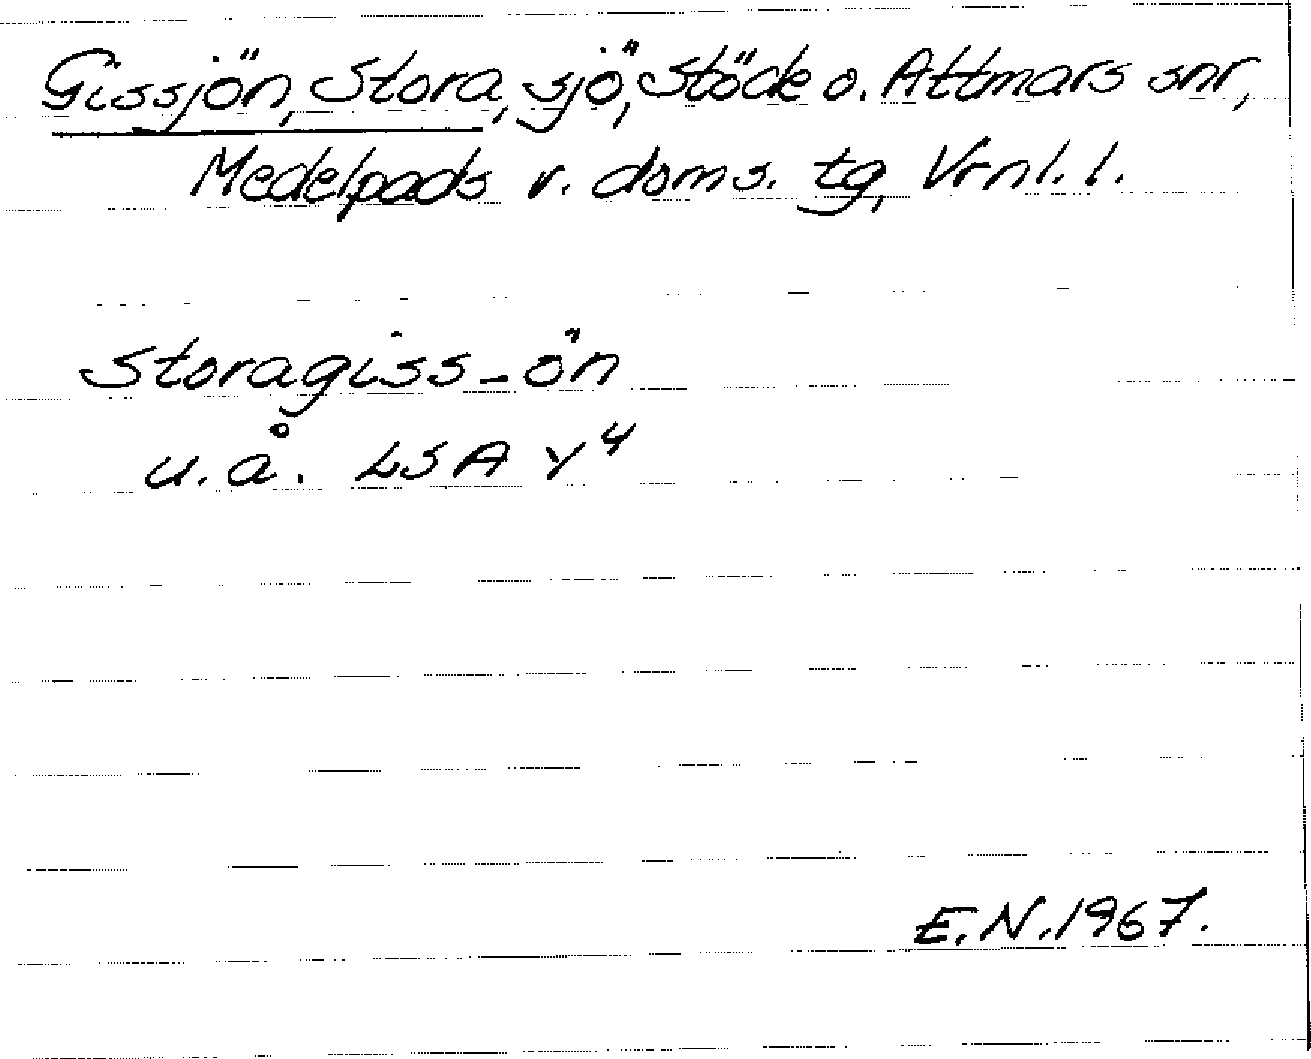 Gissjön, Stora, sjö, Stöde o. Attmars snr,
Medelpads v. doms. tg, Vrnl. l.
Storagiss-ön
u.å. LSA Y⁴
E.N. 1967.